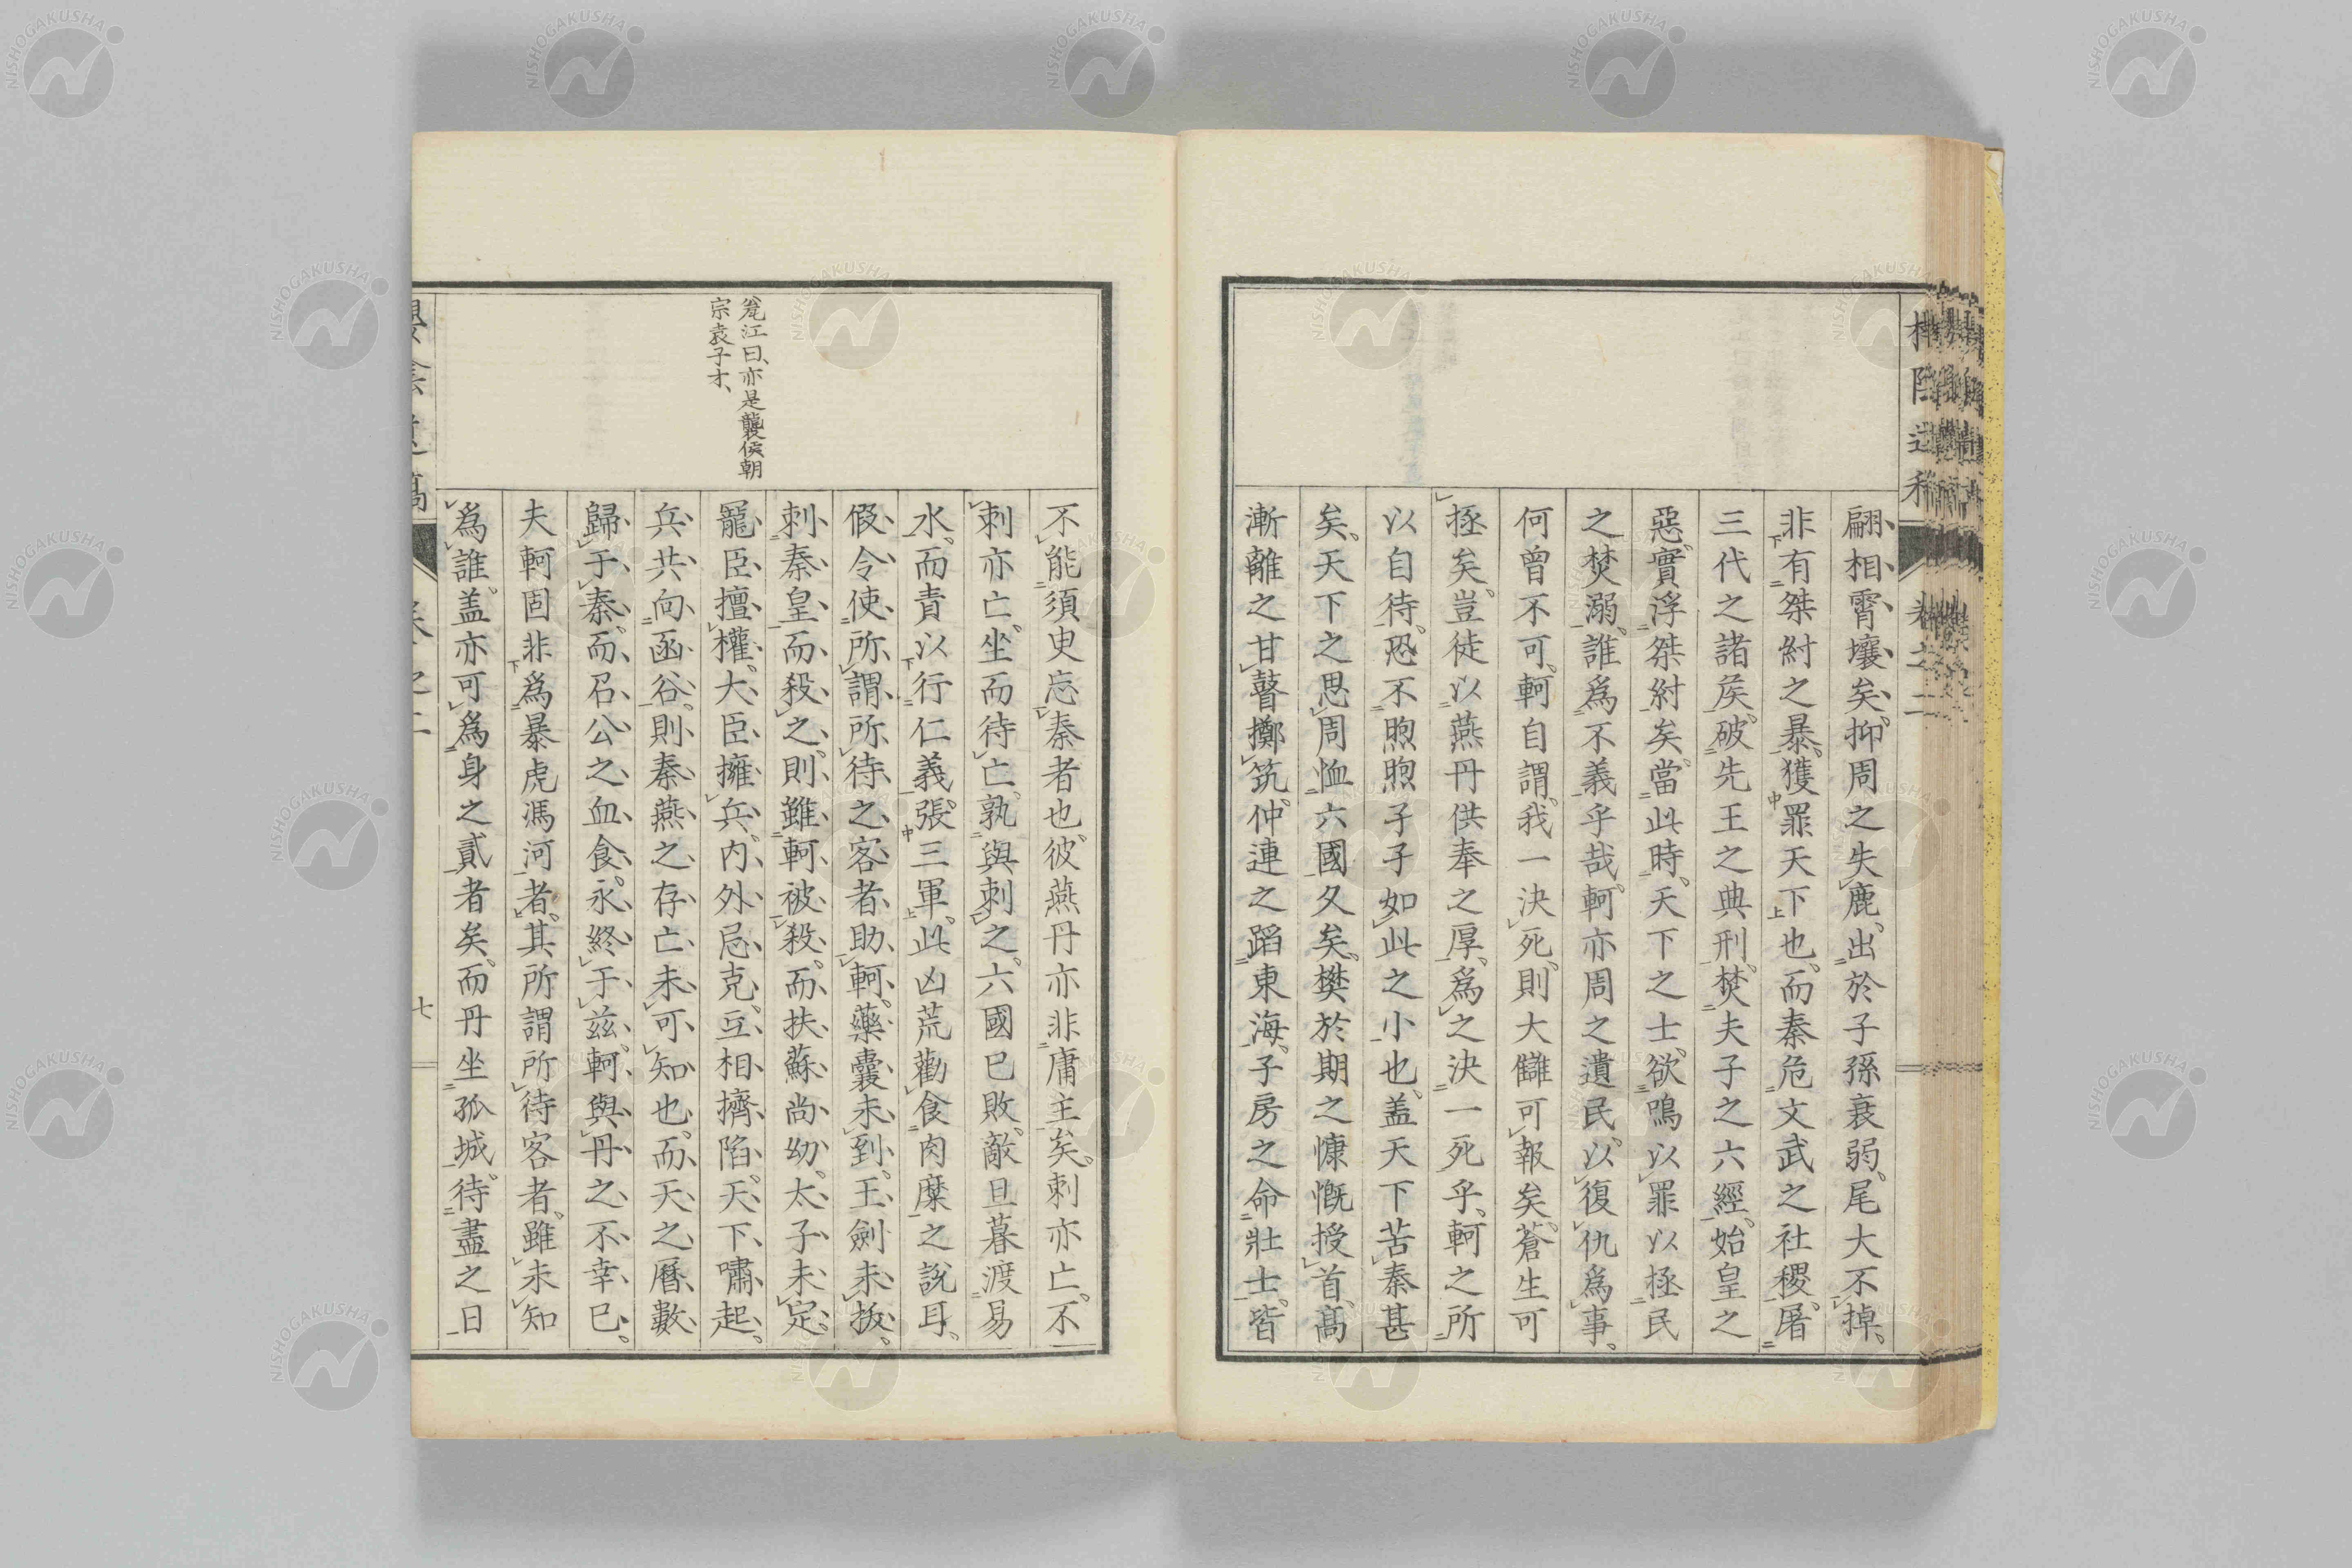 翩相霄壤矣。抑周之失鹿。出於子孫衰弱。尾大不掉、
非有桀紂之暴。獲罪天下也。而秦危文武之社稷。屠
三代之諸矦。破先王之典刑。焚夫子之六經。始皇之
惡。實浮桀紂矣。當此時。天下之士。欲鳴以罪以拯民
之焚溺。誰爲不義乎哉。軻亦周之遺民。以復仇爲事。
何曾不可。軻自謂。我一決死。則大讎可報矣。蒼生可
拯矣。豈徒以燕丹供奉之厚。爲之決一死乎。軻之所
以自待。恐不煦煦孑孑如此之小也。盖天下苦秦甚
矣。天下之思周恤六國久矣。樊於期之慷慨授首。高
漸離之甘瞽擲筑。仲連之蹈東海。子房之命壯士。皆
不能須臾忘秦者也。彼燕丹亦非庸主矣。刺亦亡。不
刺亦亡。坐而待亡。孰與刺之。六國已敗。敵旦暮渡易
水。而責以行仁義張三軍。此凶荒勸食肉糜之說耳。
假令使所謂所待之客者助軻。藥囊未到。王劍未拔。
刺秦皇而殺之。則雖軻被殺。而扶蘇尚幼。太子未定。
寵臣擅權。大臣擁兵。內外忌克。互相擠陷。天下嘯起。
兵共向函谷。則秦燕之存亡未可知也。而天之曆數
歸于秦。而召公之血食。永終于玆。軻與丹之不幸已。
夫軻固非爲暴虎馮河者。其所謂所待客者。雖未知
爲誰。盖亦可爲身之貳者矣。而丹坐孤城。待盡之日
瓮江曰、亦是襲侯朝
宗袁子才、
卷之二
七